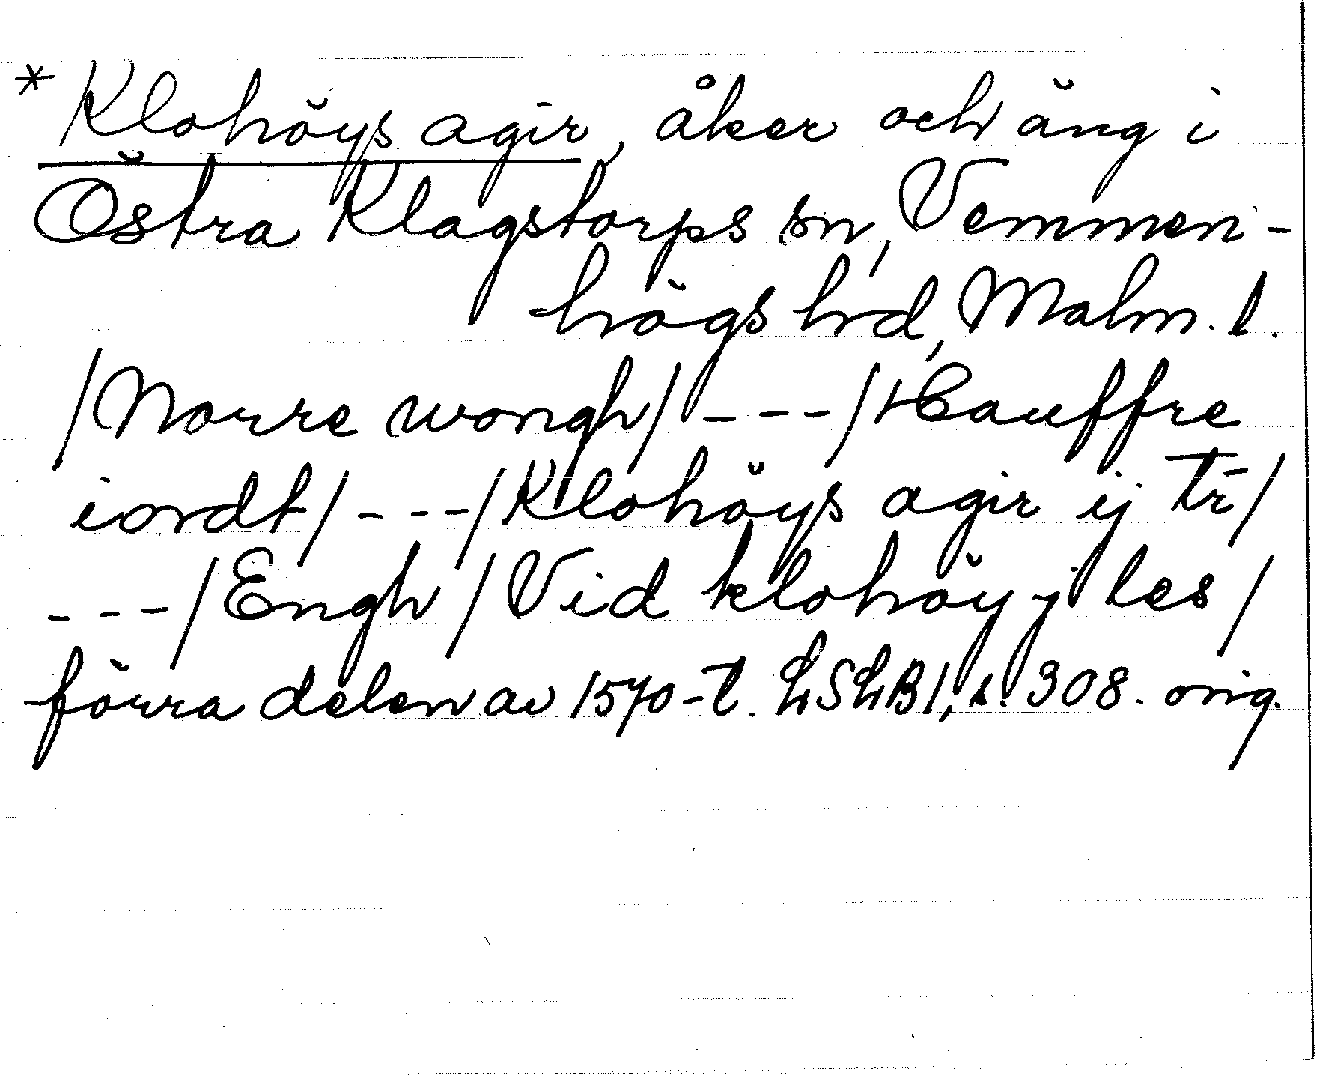 * Klohöys agir, åker och äng i
Östra Klagstorps sn, Vemmen-
högs hrd, Malm. l.
/Norre wongh/ --- /Hauffre
iordt/ --- /Klohöys agir ij tr̄/
--- /Engh/Vid klohöy j les/
förra delen av 1570-t. LSLB1, s. 308. orig.